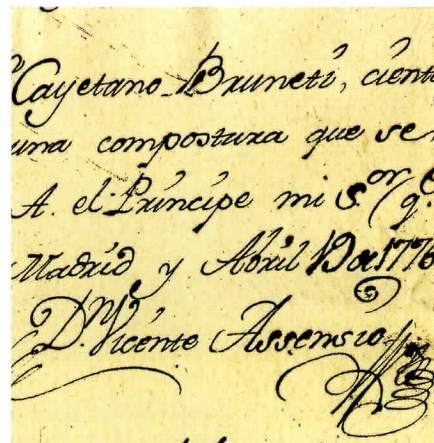 Cayetano Bruneti, cient
una compostura que se
A. el Principe mi S.or (q.
Madrid y Abril de 1776
D.n Vicente Assensio